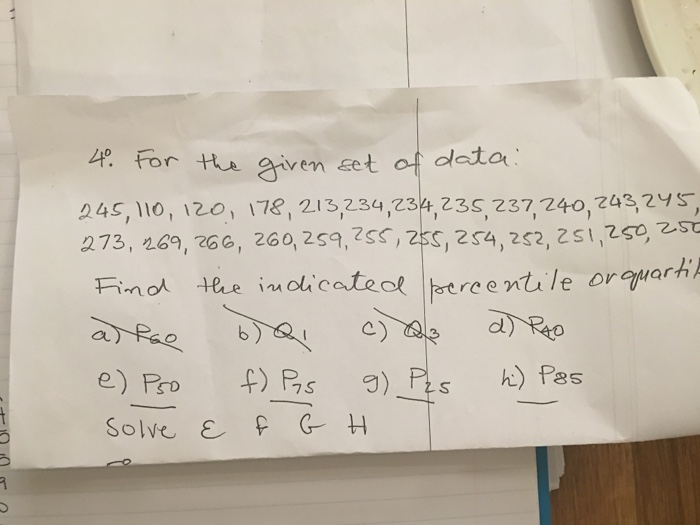 4. For the given set of data:
245, 110, 120, 178, 213, 234, 234, 235, 237, 240, 243, 245,
273, 269, 266, 260, 259, 255, 255, 254, 252, 251, 250, 250
Find the indicated percentile or quartil
a) P60 b) Q1 c) Q3 d) P40
e) P50 f) P75 g) P25 h) P85
Solve E F G H